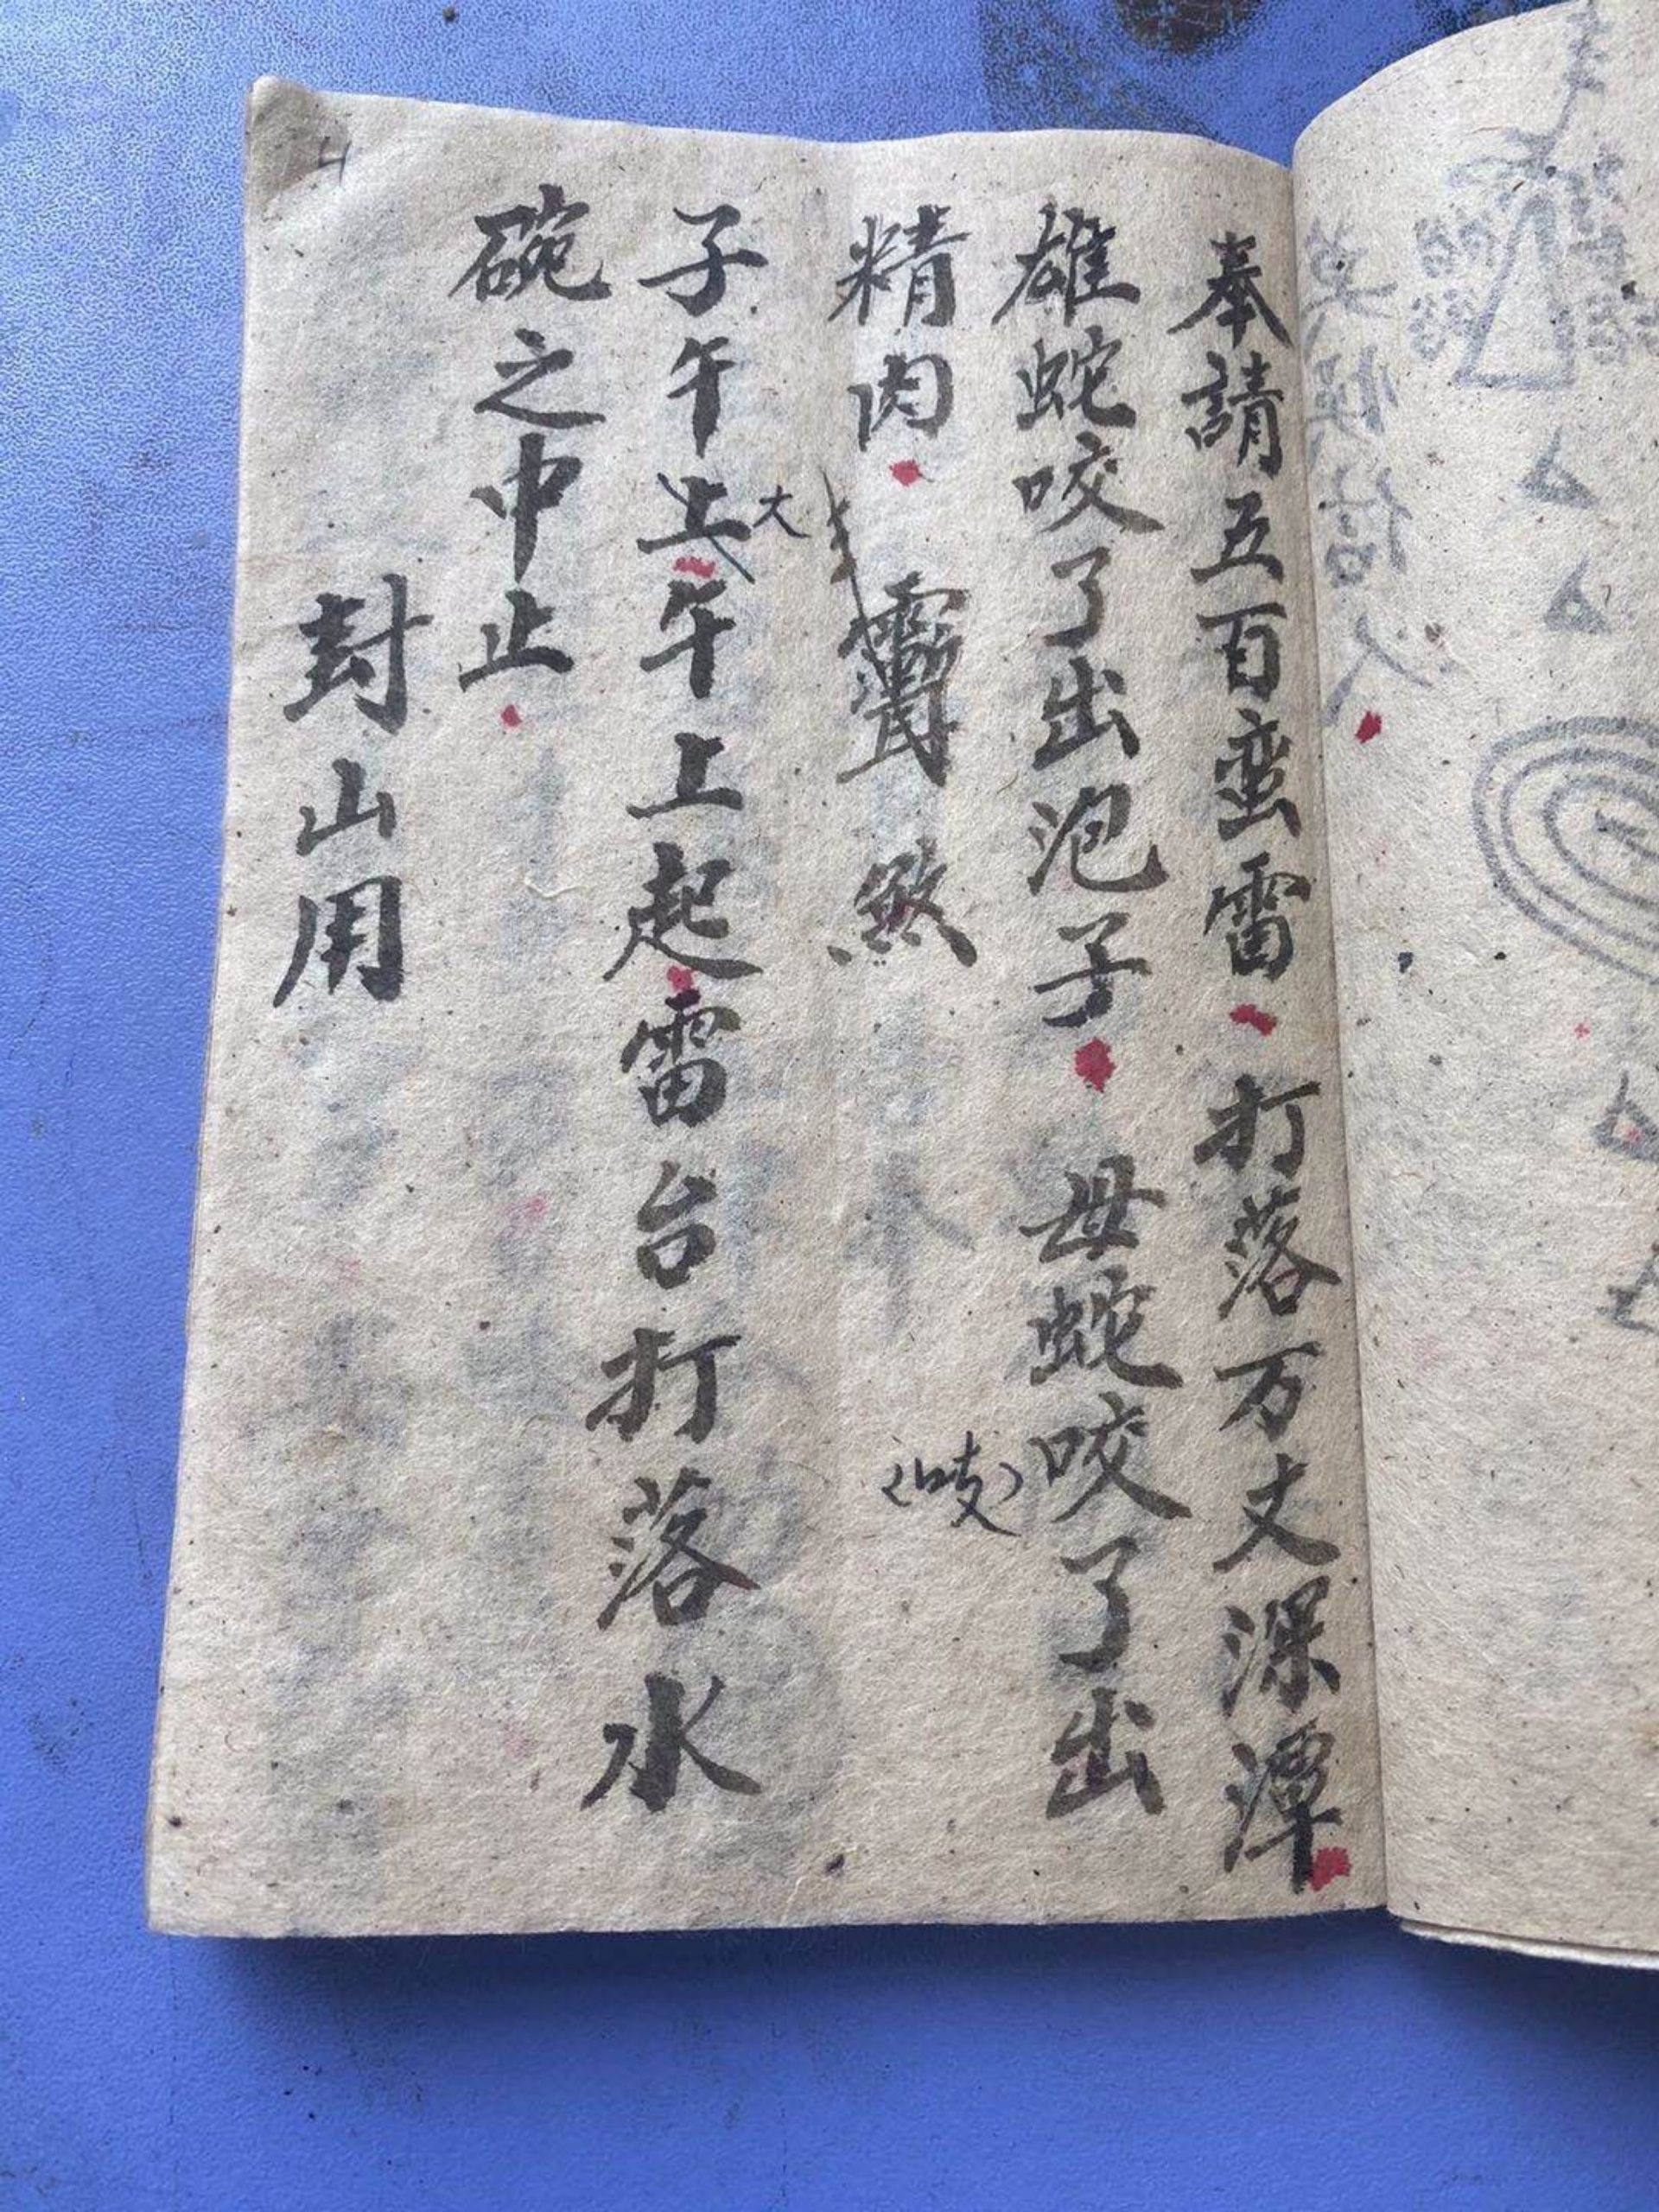 奉請五百蛮雷打落万丈深潭
雄蛇咬了出泡子母蛇咬了出
(吱)
精肉 煞
子午上午上起雷台打落水
大
碗之中止
封山用